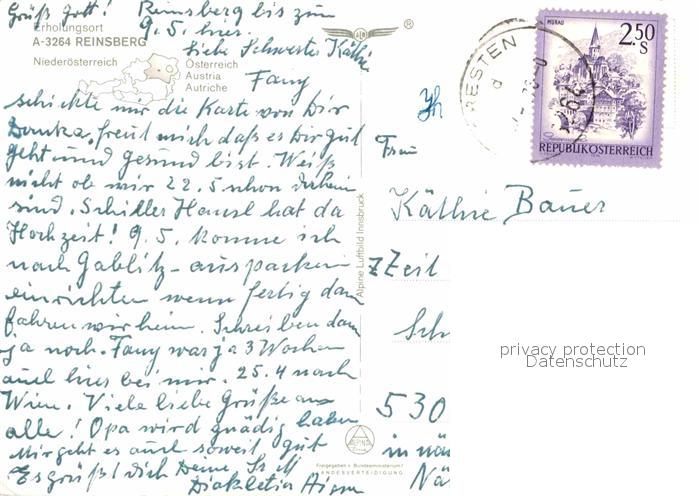 Grüß Gott! Reinsberg bis zum
9.5. hier.
Erholungsort
A-3264 REINSBERG
Niederösterreich
Österreich
Austria
Autriche
Liebe Schwester Käthi
Fany
schickte mir die Karte von Dir
Danke, freut mich daß es Dir gut
geht und gesund bist. Weiß
nicht ob wir 22.5 schon daheim
sind. Schiller Hansl hat da
Hochzeit! 9.5. komme ich
nach Gablitz - auspacken
einrichten wenn fertig dann
fahren wir heim. Schreiben dann
ja noch. Fany war ja 3 Wochen
auch hier bei mir. 25.4 nach
Wien. Viele liebe Grüße an
alle! Opa wird gnädig haben
Mir geht es auch soweit gut
Es grüßt Dich Deine
Alpine Luftbild Innsbruck
®
RESTEN
MURAU
2.50
S
REPUBLIK ÖSTERREICH
Frau
Käthie Bauer
zZeit
Sch
530
in
privacy protection
Datenschutz
ALPINE
Freigegeben v. Bundesministerium f.
LANDESVERTEIDIGUNG